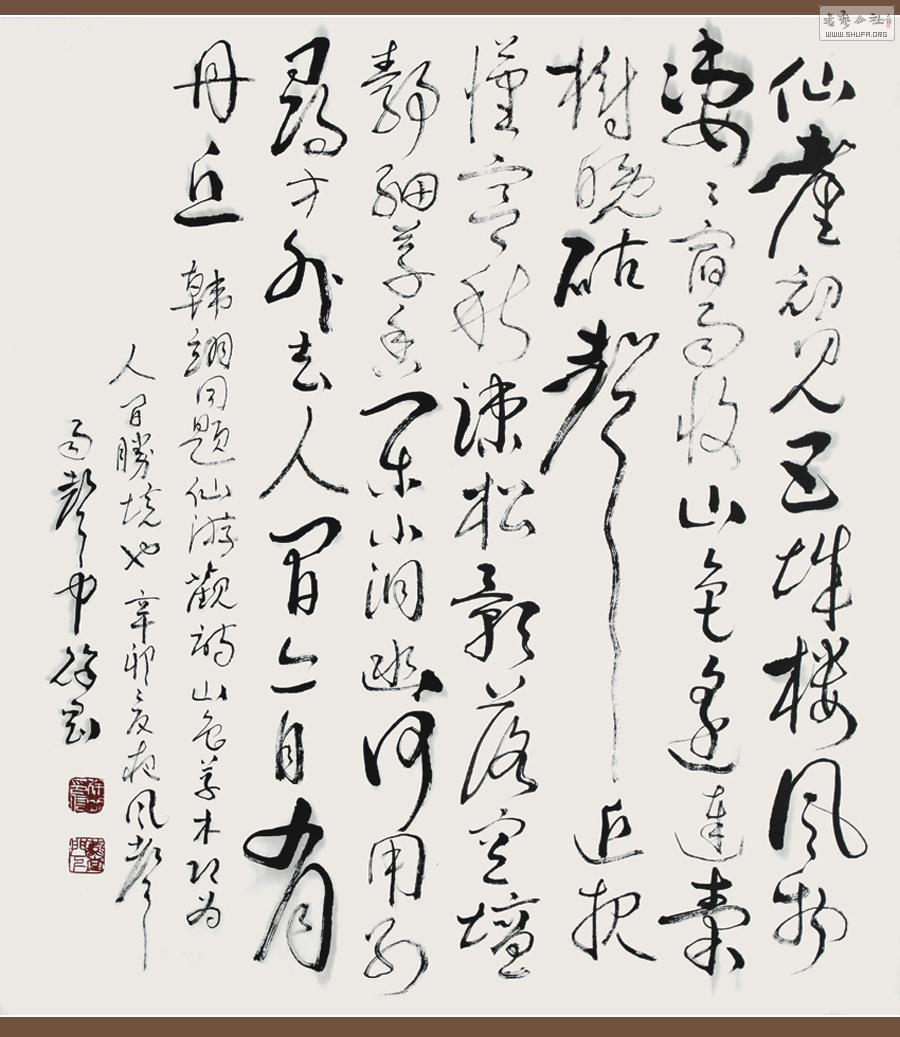 書藝公社
WWW.SHUFA.ORG
仙臺初见五城楼风物
凄々宿雨收山色遥连秦
樹晚砧声近报
漢宫秋疎松影落空壇
静细草香闲小洞幽何用别
尋方外去人间亦自有
丹丘 韩翃同题仙游观诗山色草木为
人间勝境也 辛卯夏夜风声
雨声中徐